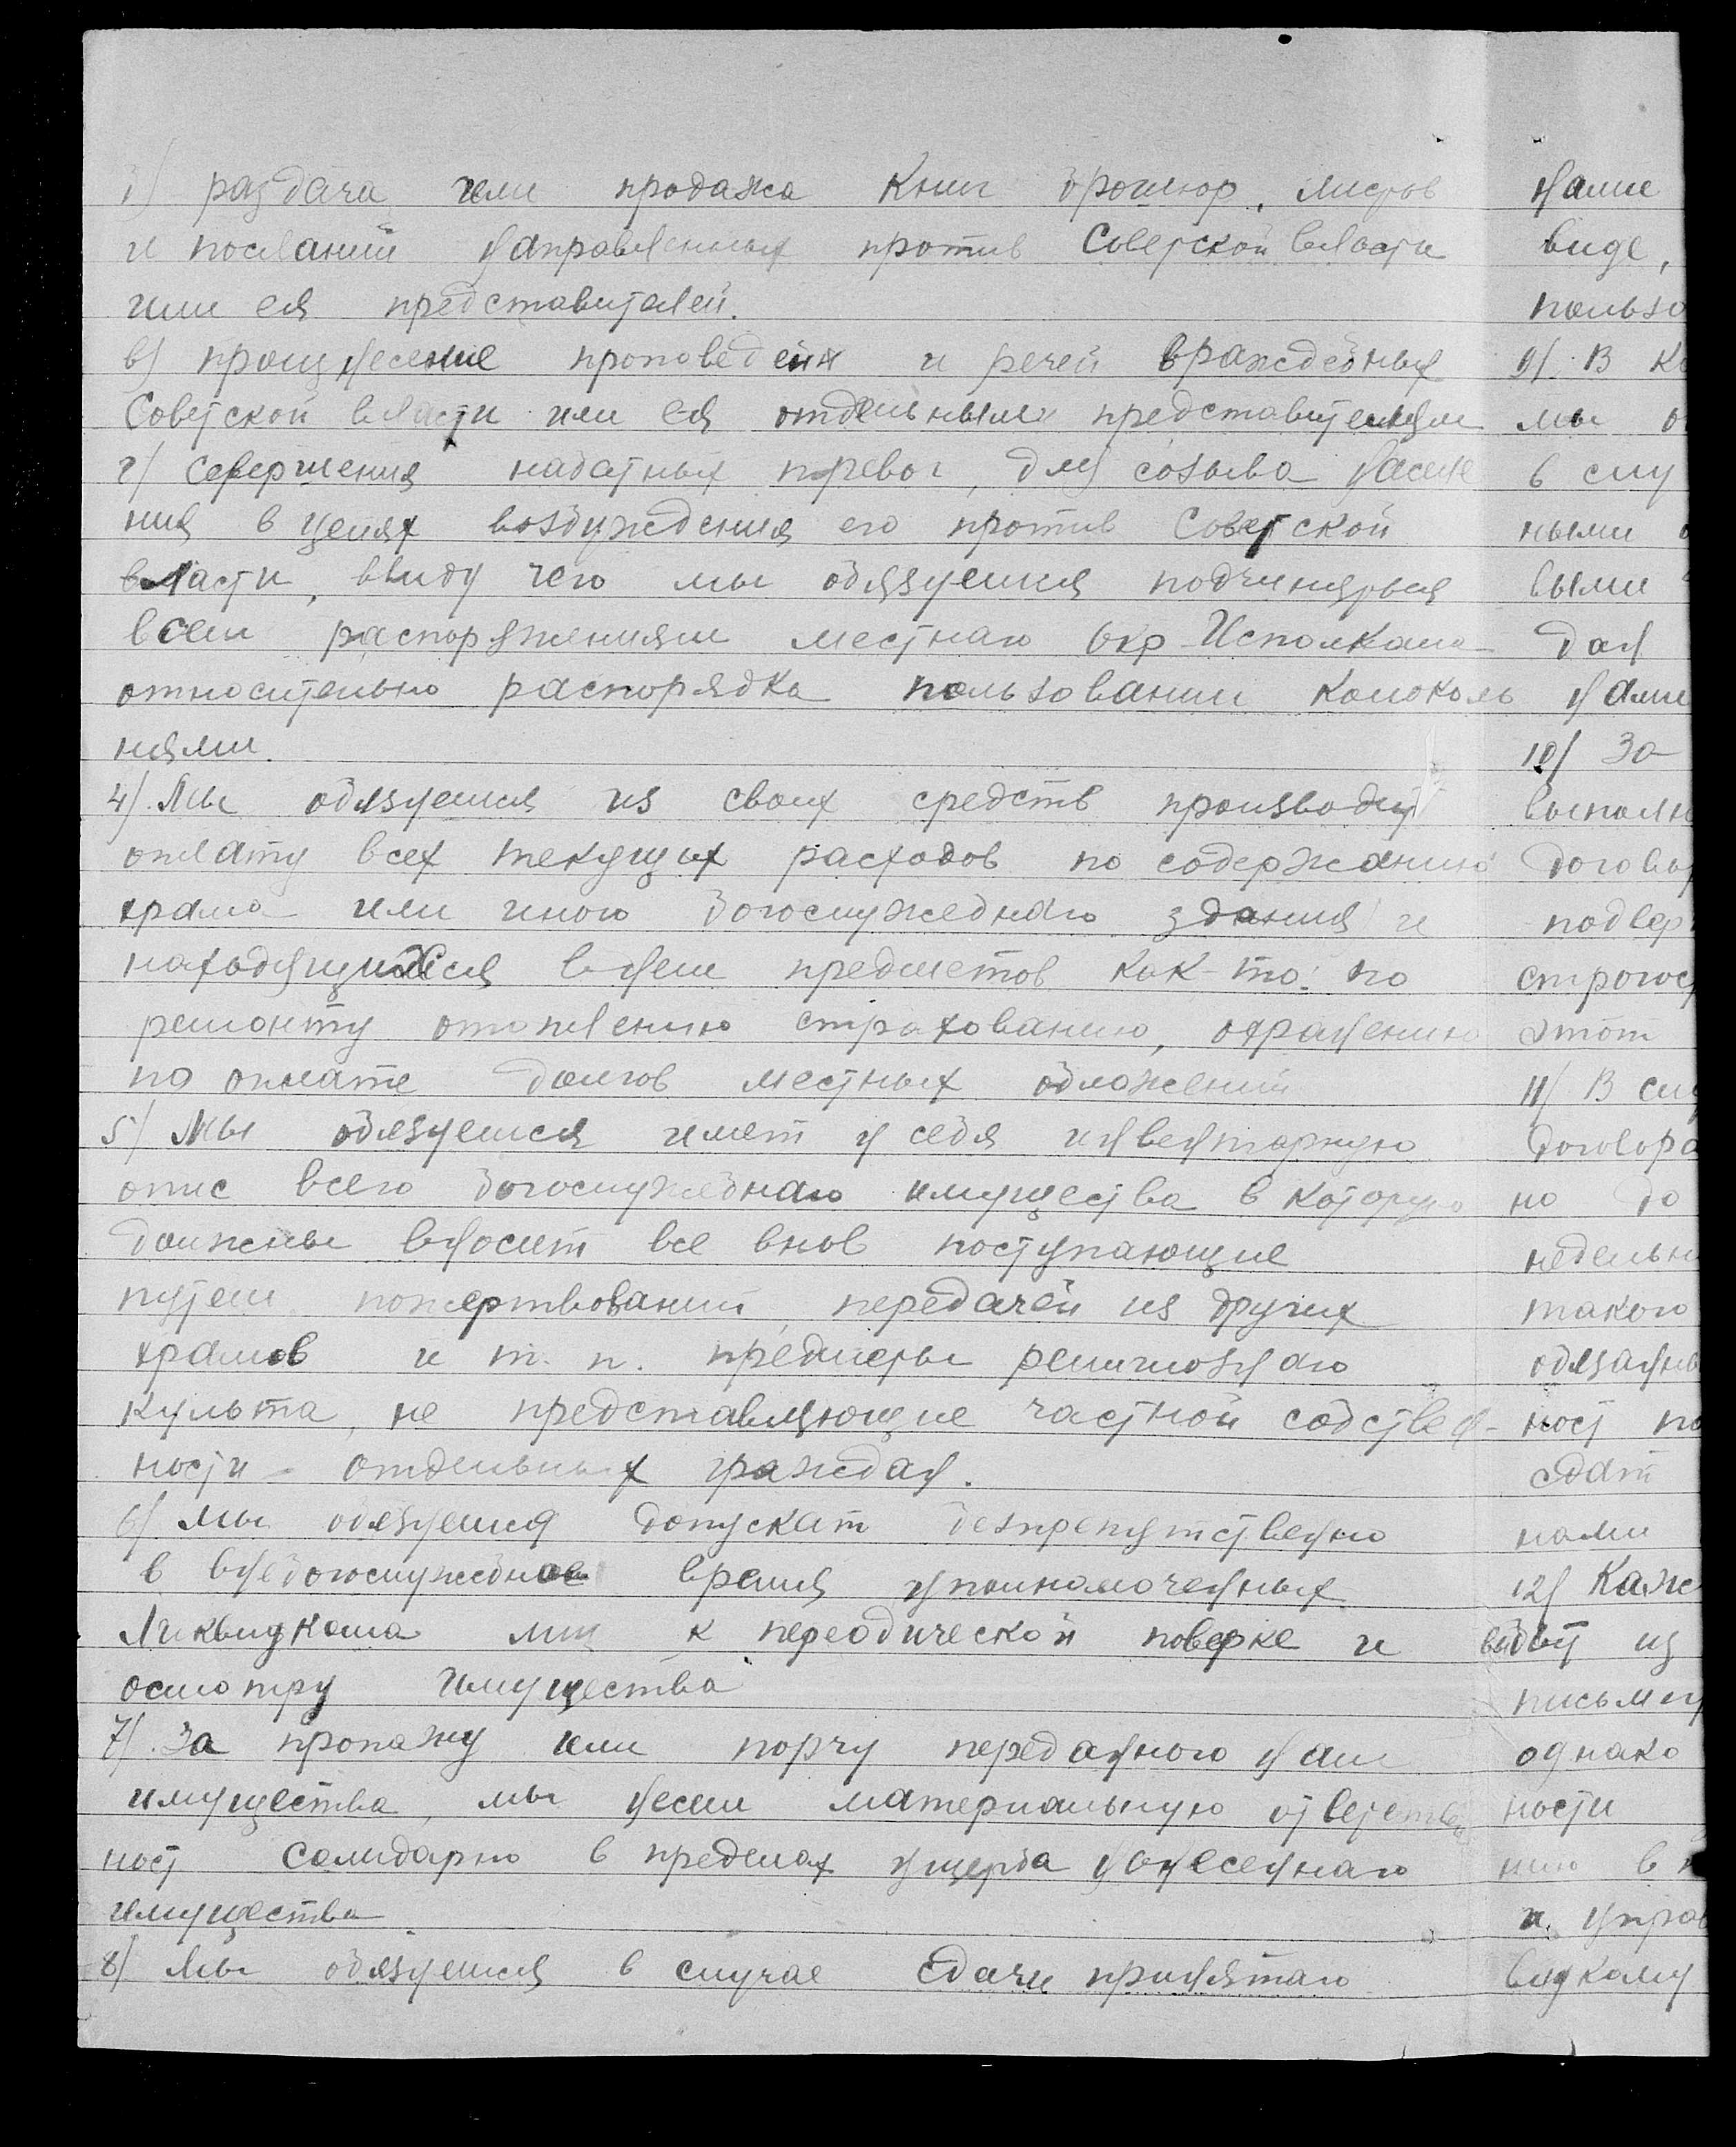 б) раздача или продажа книг брошюр, листов
и посланий направленных против Советской власти
или ея представителей.
в) произнесение проповедейи и речей враждебных
Советской власти или ея отдельным представителям
г) совершения набатных тревог, для созыва населе
ния в целях возбуждения его против Советской
власти, ввиду чего мы обязуемся подчиняться
всем распоряжениям местнаго Окр-Исполкома
относительно распорядка пользовании колоколь
нями.
4). Мы обязуемся из своих средств производит
оплату всех текущих расходов по содержанию
храма или иного богослужебнаго здания и
находящихся в нем предметов как-то: по
ремонту отоплению страхованию, охранению
по оплате долгов местных обложений
5) Мы обязуемся имет у себя инвентарную
опис всего богослужебнаго имущества в которую
должны вносит все внов поступающие
путем пожертвований, передачей из других
храмов и т. п. предметы религиознаго
культа, не представляющие частной собствен-
ности - отдельных граждан.
6) Мы обязуемся допускат безпрепятственно
в внебогослужебное время уполномоченных
Ликвидкома лиц к переодической поверке и
осмотру имущества
7). За пропажу или порчу переданого нам
имущества, мы несем материальную ответствен
ност солидарно в пределах ущерба нанесеннаго
имущества
8) Мы обязуемся в случае сдачи принятаго
нами
виде,
пользо
9). В ка
мы о
в слу
ными о
выми
дан
нами
10) За
выполн
договор
подвер
строгос
этот
11) В слу
договора
но до
недельн
такого
обязанны
ност по
сдат
нами
12) Каж
выдет из
письмен
однако
ности
нию в
и управ
видкому